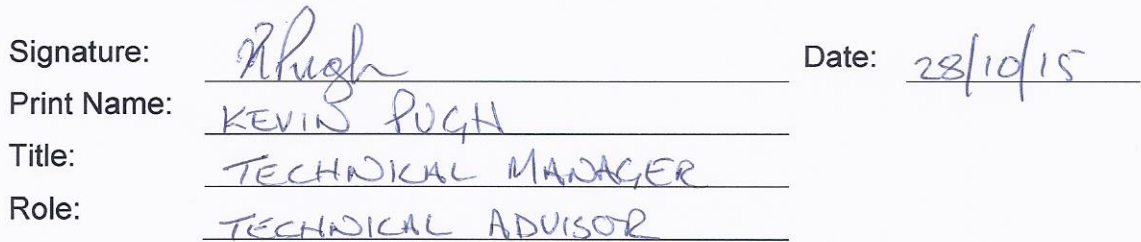 Signature: KPugh Date: 28/10/15
Print Name: KEVIN PUGH
Title: TECHNICAL MANAGER
Role: TECHNICAL ADVISOR